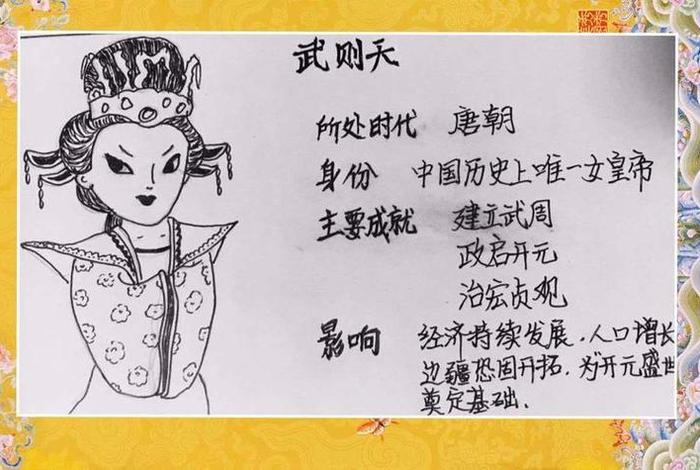 武则天
所处时代 唐朝
身份 中国历史上唯一女皇帝
主要成就 建立武周
政启开元
治宏贞观
影响 经济持续发展，人口增长
边疆恐固开拓，为开元盛世
奠定基础.